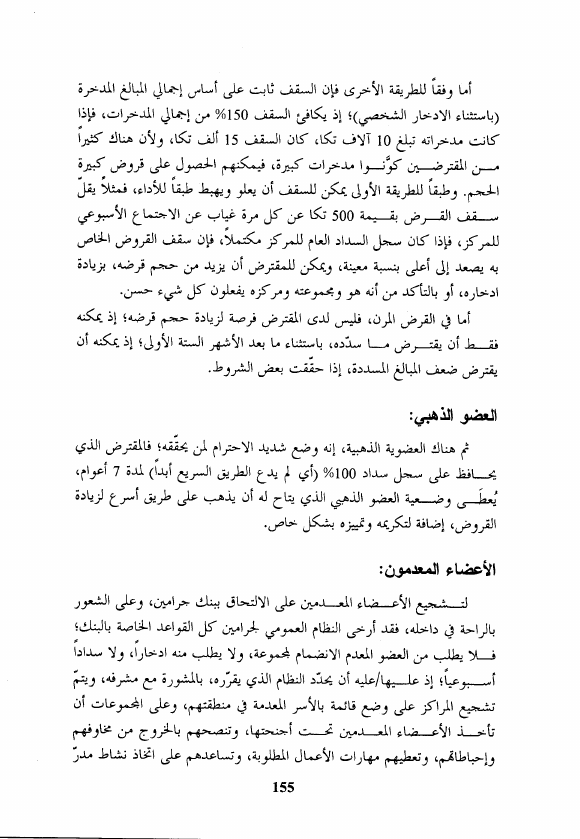 أما وفقاً للطريقة الأخرى فإن السقف ثابت على أساس إجمالي المبالغ المدخرة
(باستثناء الادخار الشخصي)؛ إذ يكافئ السقف 150% من إجمالي المدخرات، فإذا
كانت مدخراته تبلغ 10 آلاف تكا، كان السقف 15 ألف تكا، ولأن هناك كثيراً
مـن المقترضـين كوَّنـوا مدخرات كبيرة، فيمكنهم الحصول على قروض كبيرة
الحجم. وطبقاً للطريقة الأولى يمكن للسقف أن يعلو ويهبط طبقاً للأداء، فمثلاً يقلّ
سـقف القـرض بقـيمة 500 تكا عن كل مرة غياب عن الاجتماع الأسبوعي
للمركز، فإذا كان سجل السداد العام للمركز مكتملاً، فإن سقف القروض الخاص
به يصعد إلى أعلى بنسبة معينة، ويمكن للمقترض أن يزيد من حجم قرضه، بزيادة
ادخاره، أو بالتأكد من أنه هو ومجموعته ومركزه يفعلون كل شيء حسن.
أما في القرض المرن، فليس لدى المقترض فرصة لزيادة حجم قرضه؛ إذ يمكنه
فقـط أن يقتـرض مـا سدّده، باستثناء ما بعد الأشهر الستة الأولى؛ إذ يمكنه أن
يقترض ضعف المبالغ المسددة، إذا حقّقت بعض الشروط.
العضو الذهبي:
ثم هناك العضوية الذهبية، إنه وضع شديد الاحترام لمن يحقّقه؛ فالمقترض الذي
يحـافظ على سجل سداد 100% (أي لم يدع الطريق السريع أبداً) لمدة 7 أعوام،
يُعطَـى وضـعية العضو الذهبي الذي يتاح له أن يذهب على طريق أسرع لزيادة
القروض، إضافة لتكريمه وتمييزه بشكل خاص.
الأعضاء المعدمون:
لتـشجيع الأعـضاء المعـدمين على الالتحاق ببنك جرامين، وعلى الشعور
بالراحة في داخله، فقد أرخى النظام العمومي لجرامين كل القواعد الخاصة بالبنك؛
فـلا يطلب من العضو المعدم الانضمام لمجموعة، ولا يطلب منه ادخاراً، ولا سداداً
أسـبوعياً؛ إذ علـيها/عليه أن يحدّد النظام الذي يقرّره، بالمشورة مع مشرفه، ويتمّ
تشجيع المراكز على وضع قائمة بالأسر المعدمة في منطقتهم، وعلى المجموعات أن
تأخـذ الأعـضاء المعـدمين تحـت أجنحتها، وتنصحهم بالخروج من مخاوفهم
وإحباطاتهم، وتعطيهم مهارات الأعمال المطلوبة، وتساعدهم على اتخاذ نشاط مدرّ
155